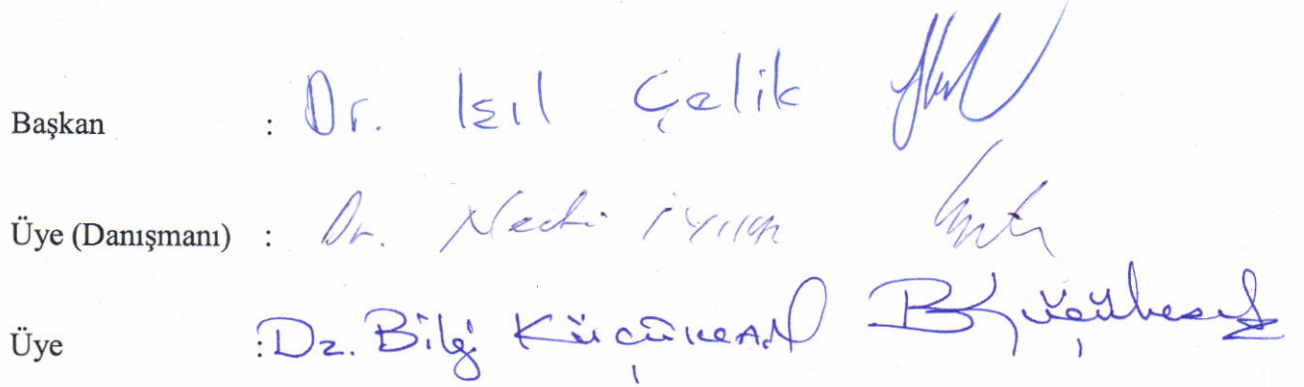 Başkan : Dr. Işıl Çelik
Üye (Danışmanı) : Dr. Necdi
Üye : Dr. Bilgi Küçükcan